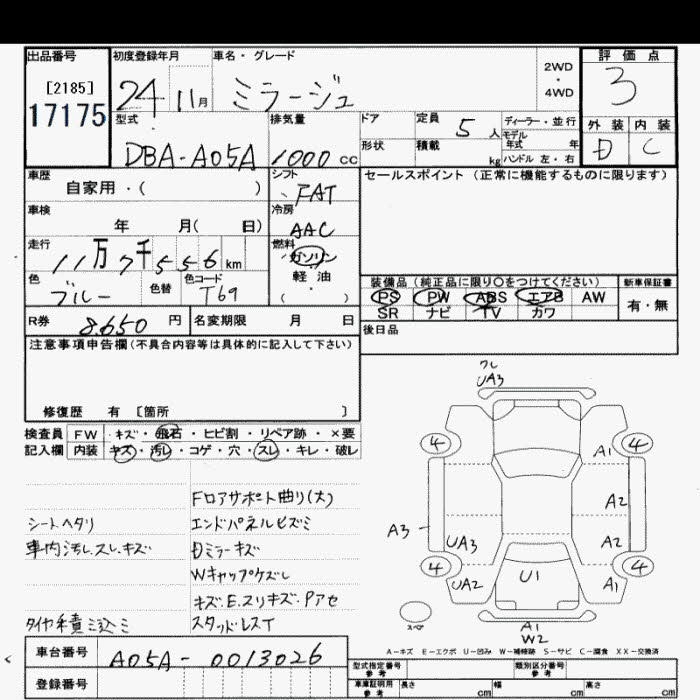 出品番号
[2185]
17175
初度登録年月
24 11月
車名・グレード
ミラージュ
2WD
・
4WD
評価点
3
外装 内装
D C
型式
DBA-A05A
排気量
1000 cc
ドア
形状
定員
5 人
積載
kg
ディーラー・並行
モデル
年式 年
ハンドル 左・右
車歴
自家用・( )
シフト
FAT
セールスポイント(正常に機能するものに限ります)
車検
年 月( 日)
冷房
AAC
走行
11万7千556km
燃料
ガソリン
軽油
( ・ )
色
ブルー
色替
色コード
T69
装備品(純正品に限り○をつけてください)
PS PW ABS エアB AW
SR ナビ TV カワ
新車保証書
有・無
R券
8.650 円
名変期限 月 日
後日品
注意事項申告欄(不具合内容等は具体的に記入して下さい)
修復歴 有 [箇所 ]
検査員 FW キズ・飛石・ヒビ割・リペア跡・×要
記入欄 内装 キズ・汚レ・コゲ・穴・スレ・キレ・破レ
Fロアサポート曲り(大)
シートヘタリ
エンドパネルヒズミ
車内汚レ.スレ.キズ
Dミラーキズ
Wキャップケズレ
キズ.E.スリキズ.Pアセ
タイヤ積ミ込ミ
スタッドレスイ
フレ
UA3
4 4
A1
A2
A3
UA3
A2
4 4
UA2
U1
A1
スペ
A1
W2
A-キズ E-エクボ U-凹み W-補修跡 S-サビ C-腐食 XX-交換済
車台番号
A05A-0013026
登録番号
型式指定番号
参考
類別区分番号
参考
車庫証明用
参考
長さ cm
幅 cm
高さ cm